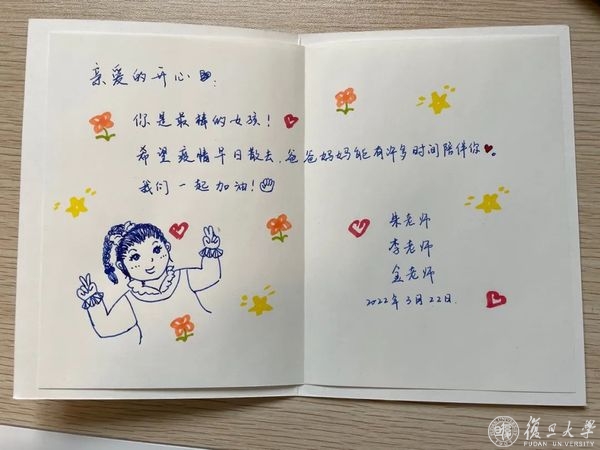 亲爱的开心:
你是最棒的女孩!
希望疫情早日散去,爸爸妈妈能有许多时间陪伴你。
我们一起加油!
朱老师
李老师
金老师
2022年3月22日.
復旦大學
FUDAN UNIVERSITY